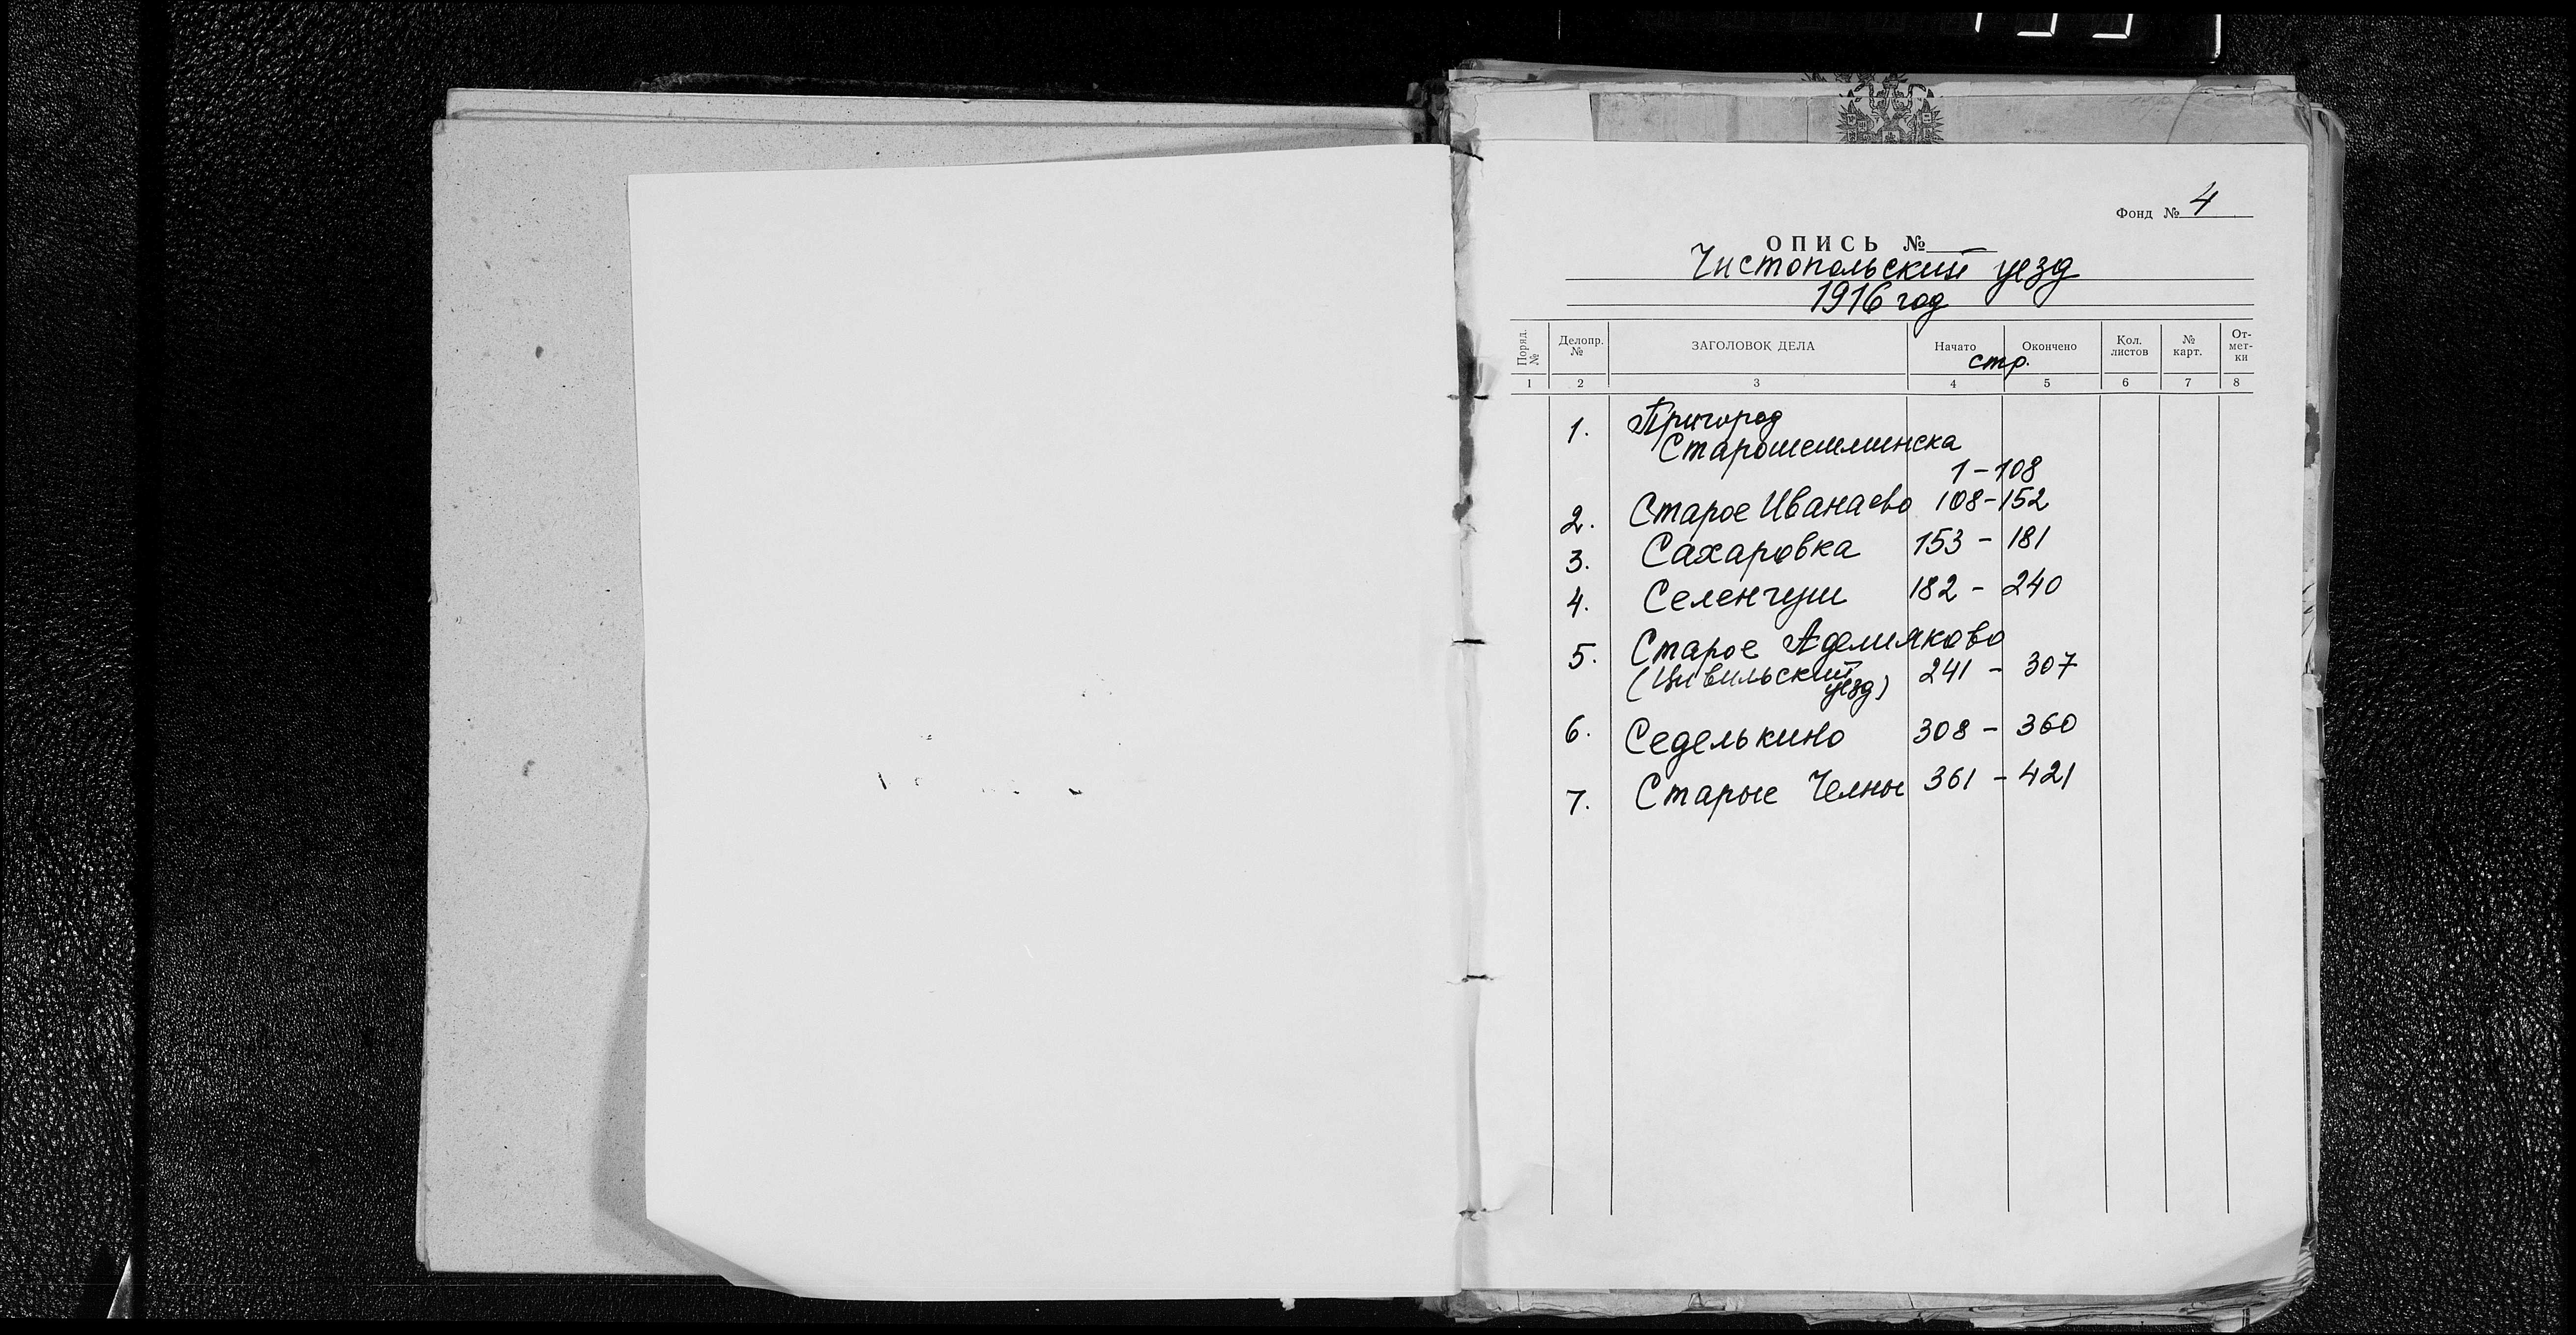 Фонд № 4
ОПИСЬ №
Чистопольский уезд
1916 год
Поряд. №
Делопр. №
ЗАГОЛОВОК ДЕЛА
Начато
Окончено
стр.
Кол. листов
№ карт.
От-мет-ки
1 2 3 4 5 6 7 8
1. Пригород
Старошешминска
1-108
2. Старое Иванаево 108-152
3. Сахаровка 153 - 181
4. Селенгуши 182 - 240
5. Старое Аделяково
(Цивильский 241 - 307
уезд)
6. Седелькино 308 - 360
7. Старые Челны 361 - 421